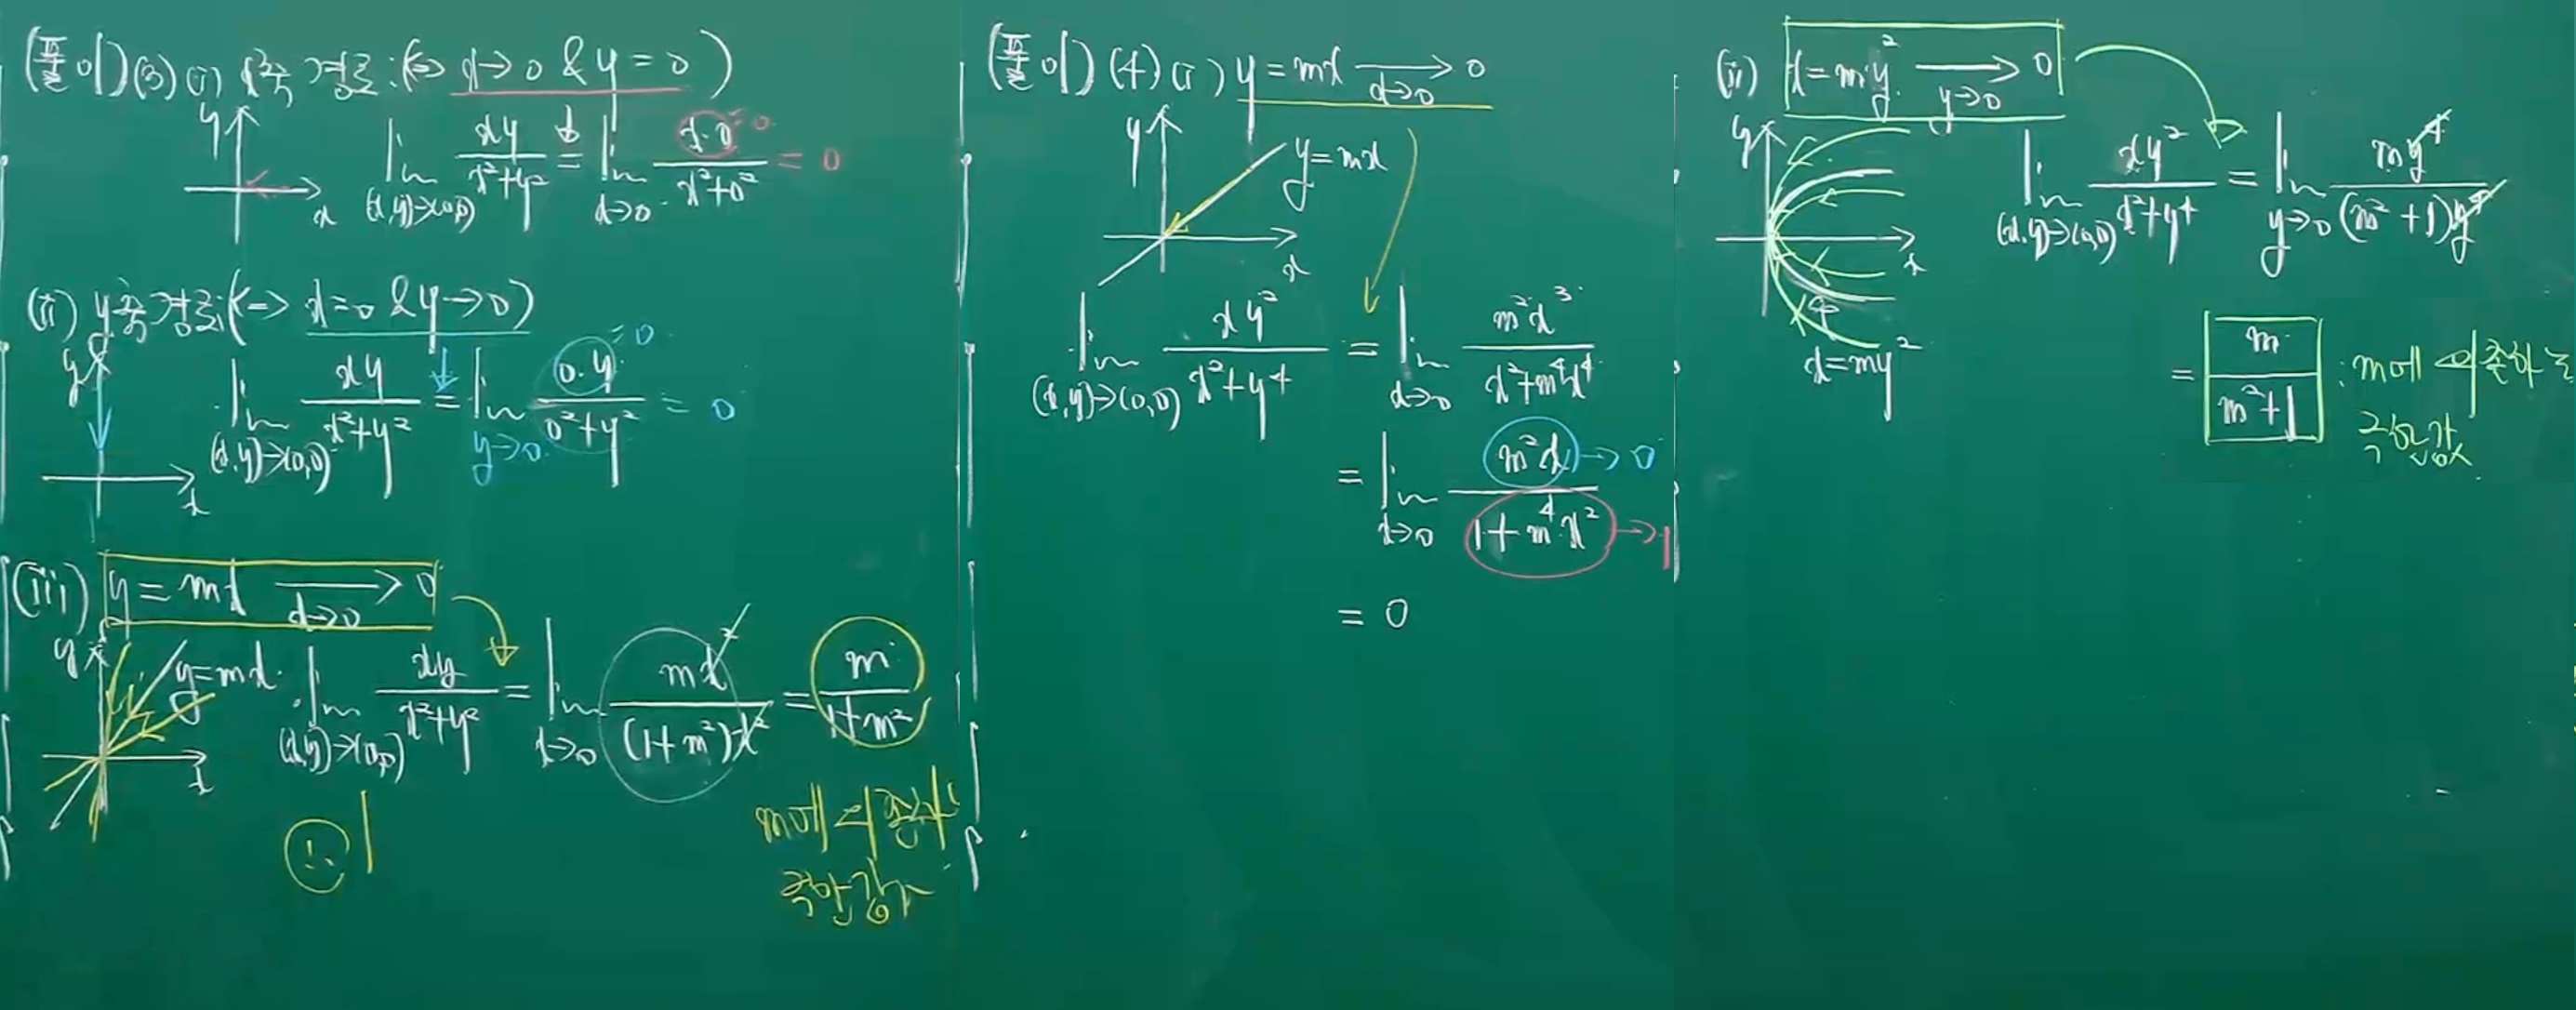 (풀이) (3) (i) x축 경로 : (<=> x→0 & y=0)
y
x
lim (x,y)→(0,0) xy/(x²+y²) = lim x→0 x·0/(x²+0²) = 0
=0
(ii) y축 경로 : (<=> x=0 & y→0)
y
x
lim (x,y)→(0,0) xy/(x²+y²) = lim y→0 0·y/(0²+y²) = 0
=0
(iii) y=mx → 0
x→0
y
y=mx
x
lim (x,y)→(0,0) xy/(x²+y²) = lim x→0 mx²/((1+m²)x²) = m/(1+m²)
m에 의존하
극한값
(풀이) (4) (i) y=mx → 0
x→0
y
y=mx
x
lim (x,y)→(0,0) xy²/(x²+y⁴) = lim x→0 m²x³/(x²+m⁴x⁴)
= lim x→0 m²x/(1+m⁴x²)
→0
→1
= 0
(ii) x=my² → 0
y→0
y
x
x=my²
lim (x,y)→(0,0) xy²/(x²+y⁴) = lim y→0 my⁴/((m²+1)y⁴)
= m/(m²+1) : m에 의존하는
극한값